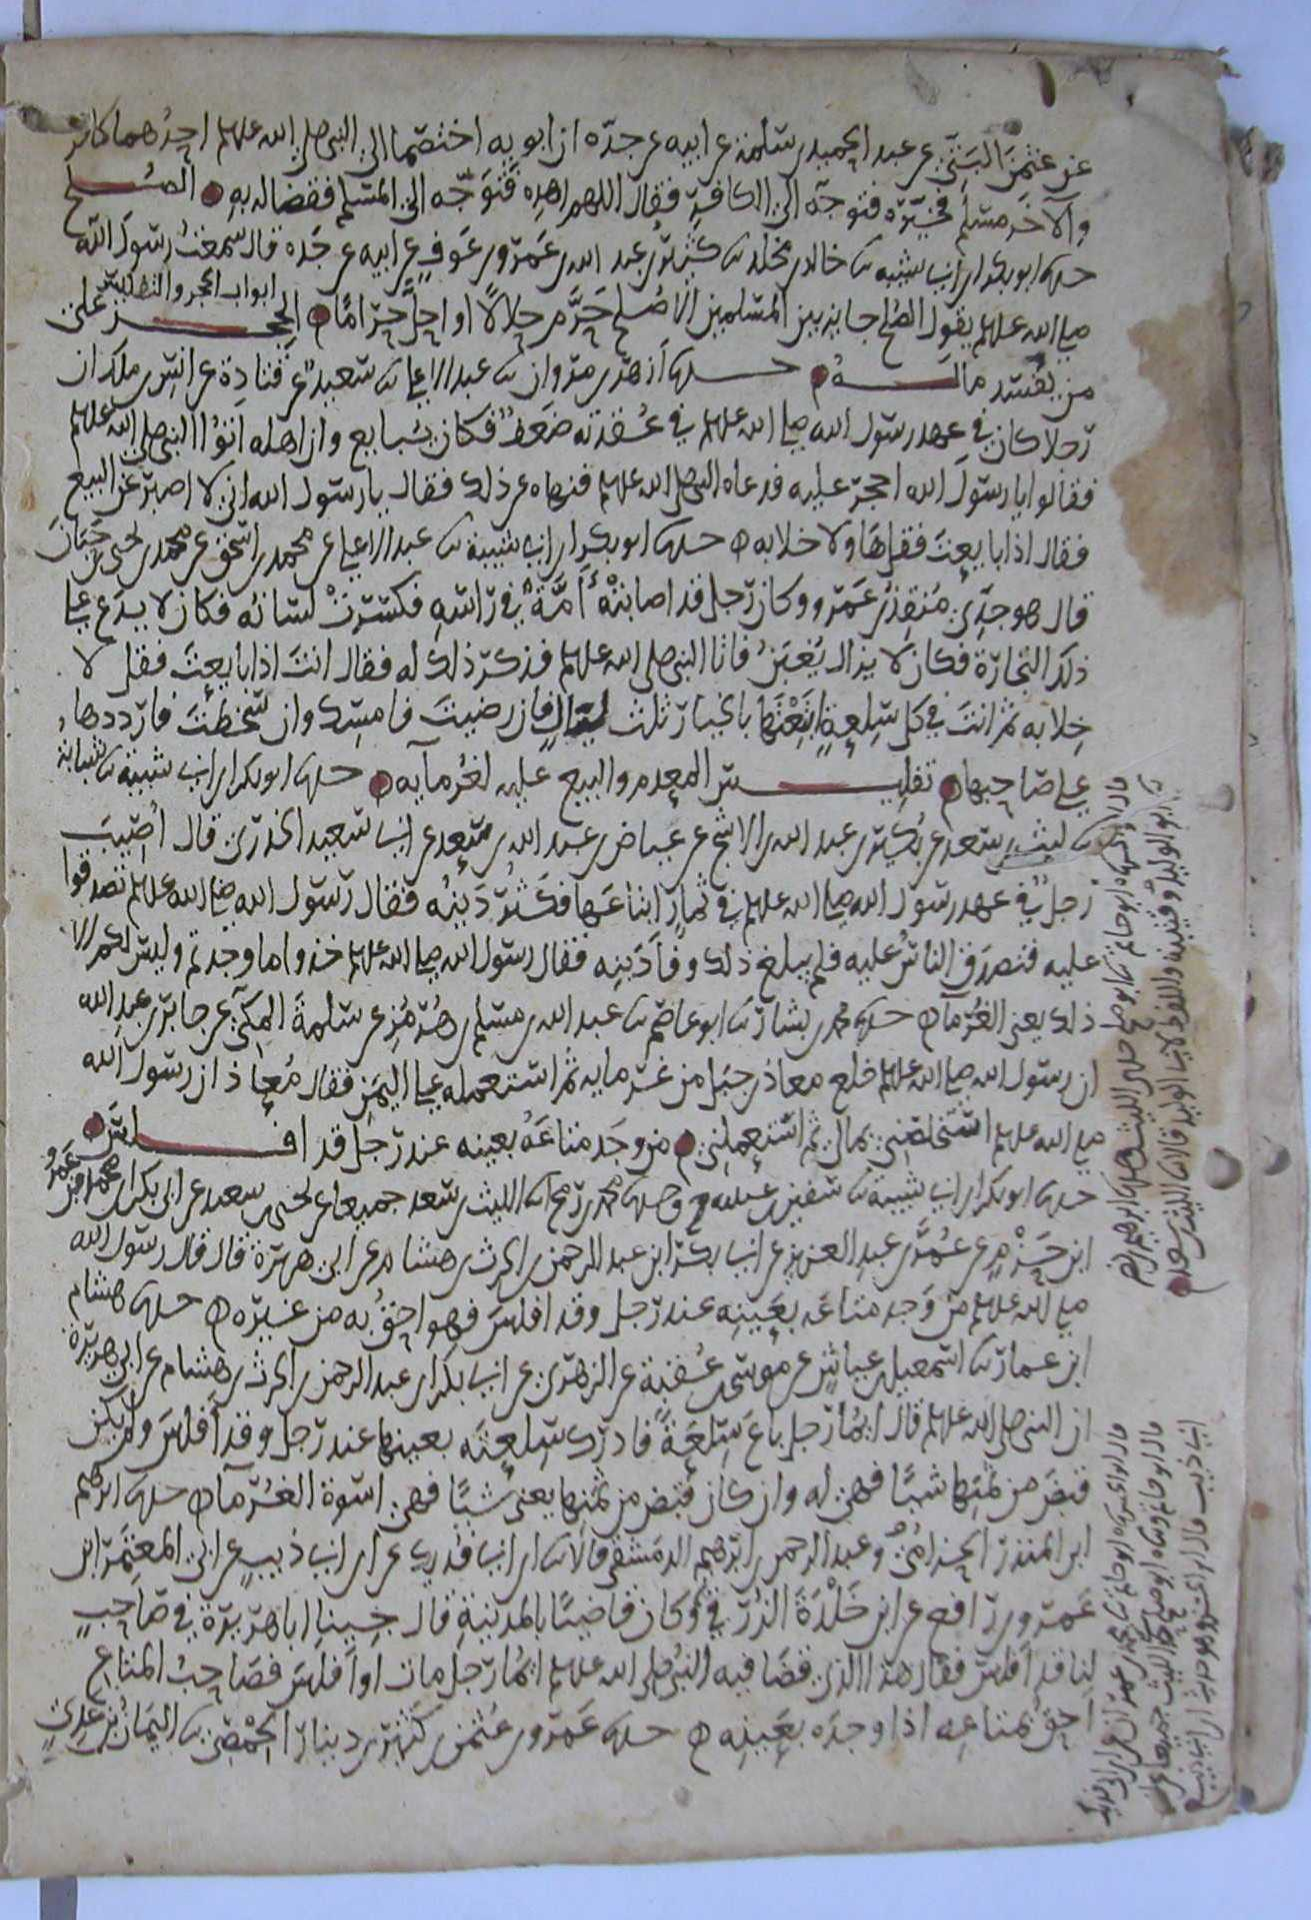 عن عثمن البتي عن عبد الحميد بن سلمة عن ابيه عن جده ان ابويه اختصما الى النبي صلى الله علىه وسلم احدهما كافر
والآخر مسلم فخيره فتوجه الى الكافر فقال اللهم اهده فتوجه الى المسلم فقضا له به الصلح
حدثنا ابو بكر ابن ابي شيبه ثنا خالد بن مخلد ثنا كثير بن عبد الله بن عمرو بن عوف عن ابيه عن جده قال سمعت رسول الله
صلى الله عليه وسلم يقول الصلح جايز بين المسلمين الا صلح حرم حلالا او احل حراما ابواب الحجر والتفليس الحجر على
من يفسد ماله حدثنا ازهر بن مروان ثنا عبد الاعلى ثنا سعيد عن قتادة عن انس بن ملك ان
رجلا كان في عهد رسول الله صلى الله عليه وسلم في عقدته ضعف فكان يبايع وان اهله اتوا النبي صلى الله عليه وسلم
فقالوا يا رسول الله احجر عليه فدعاه النبي صلى الله عليه وسلم فنهاه عن ذلك فقال يا رسول الله اني لا اصبر عن البيع
فقال اذا بايعت فقل ها ولا خلابه حدثنا ابو بكر ابن ابي شيبة ثنا عبد الاعلى عن محمد بن اسحق عن محمد بن يحيى بن حبان
قال هو جدي منقذ بن عمرو وكان رجل قد اصابته آمة في راسه فكسرت لسانه فكان لا يدع على
ذلك التجارة فكان لا يزال يغبن فاتا النبي صلى الله عليه وسلم فذكر ذلك له فقال انت اذا بايعت فقل لا
خلابه ثم انت في كل سلعة ابتعتها بالخيار ثلث ليال فان رضيت فامسك وان سخطت فارددها
على صاحبها تفليس المعدم والبيع عليه لغرمايه حدثنا ابو بكر ابن ابي شيبة ثنا شبابة
ثنا ليث بن سعد عن بكير بن عبد الله بن الاشج عن عياض بن عبد الله بن سعد عن ابي سعيد الخدري قال اصيب
رجل في عهد رسول الله صلى الله عليه وسلم في ثمار ابتاعها فكثر دينه فقال رسول الله صلى الله عليه وسلم تصدقوا
عليه فتصدق الناس عليه فلم يبلغ ذلك وفا دينه فقال رسول الله صلى الله عليه وسلم خذوا ما وجدتم وليس لكم الا
ذلك يعني الغرمآ حدثنا محمد بن بشار ثنا ابو عاصم ثنا عبد الله بن مسلم بن هرمز عن سلمة المكي عن جابر بن عبد الله
ان رسول الله صلى الله عليه وسلم خلع معاذ بن جبل من غرمايه ثم استعمله على اليمن فقال معاذ ان رسول الله
صلى الله عليه وسلم استخلصني بمالي ثم استعملني من وجد متاعه بعينه عند رجل قد افلس
حدثنا ابو بكر ابن ابي شيبة ثنا سفين بن عيينه ح وحدثنا محمد بن رمح انا الليث بن سعد جميعا عن يحيى بن سعيد عن ابي بكر ابن محمد بن عمرو
ابن حزم عن عمر بن عبد العزيز عن ابي بكر ابن عبد الرحمن بن الحرث بن هشام عن ابي هريرة قال قال رسول الله
صلى الله عليه وسلم من وجد متاعه بعينه عند رجل وقد افلس فهو احق به من غيره حدثنا هشام
ابن عمار ثنا اسمعيل بن عياش عن موسى بن عقبة عن الزهري عن ابي بكر ابن عبد الرحمن بن الحرث بن هشام عن ابي هريرة
ان النبي صلى الله عليه وسلم قال ايما رجل باع سلعة فادرك سلعته بعينها عند رجل وقد افلس ولم يكن
قبض من ثمنها شيا فهي له وان كان قبض من ثمنها يعني شيا فهي اسوة الغرمآ حدثنا ابرهيم
ابن المنذر الحزامي وعبد الرحمن بن ابرهيم الدمشقي قالا ثنا ابن ابي فديك عن ابن ابي ذيب عن ابي المعتمر ابن
عمرو بن رافع عن ابن خلدة الزرقي وكان قاضيا بالمدينة قال جينا ابا هريرة في صاحب
لنا قد افلس فقال هذا الذي قضا فيه النبي صلى الله عليه وسلم ايما رجل مات او افلس فصاحب المتاع
احق بمتاعه اذا وجده بعينه حدثنا عمرو بن عثمن بن كثير بن دينار الحمصي ثنا اليمان بن عدي